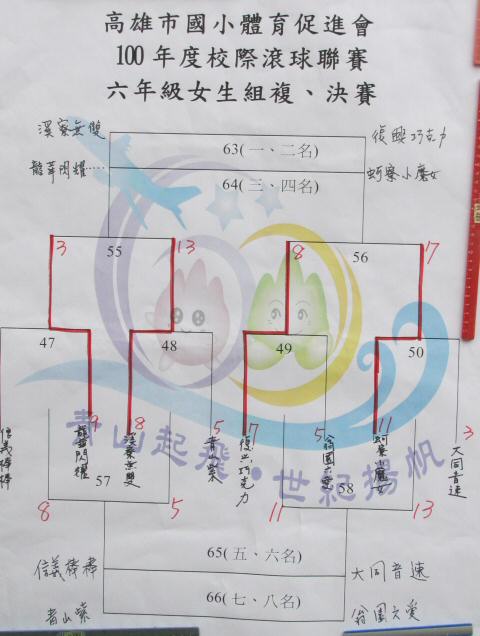 高雄市國小體育促進會
100年度校際滾球聯賽
六年級女生組複、決賽
溪寮無雙
63(一、二名)
復興巧克力
龍華閃耀
64(三、四名)
蚵寮小魔女
3
55
13
8
56
7
47
48
49
50
信義棒棒
9
龍華閃耀
8
溪寮無雙
5
青山
7
復興巧克力
5
翁園
11
蚵寮魔女
3
大同音速
青山起飛·世紀揚帆
57
58
8
5
11
13
65(五、六名)
信義棒棒
大同音速
66(七、八名)
青山
翁園